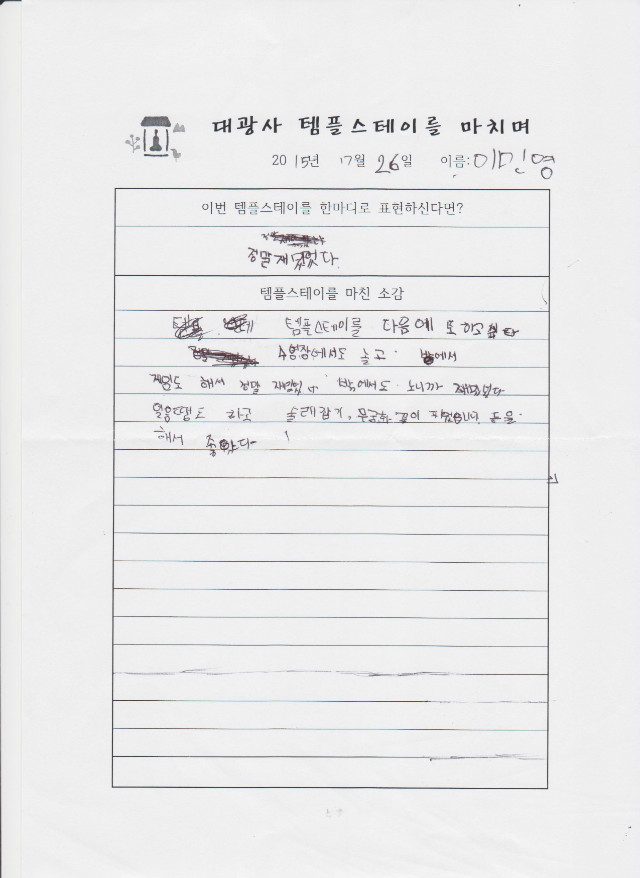 대광사 템플스테이를 마치며
2015년 7월 26일 이름: 이민영
이번 템플스테이를 한마디로 표현하신다면?
정말 재밌었다.
템플스테이를 마친 소감
템플스테이를 다음에 또 하고 싶다
수영장에서도 놀고 밖에서
게임도 해서 정말 밖에서도 노니까 재밌었다
얼음땡도 하고 술래잡기, 무궁화 꽃이 피었습니다 등을
해서 좋았다